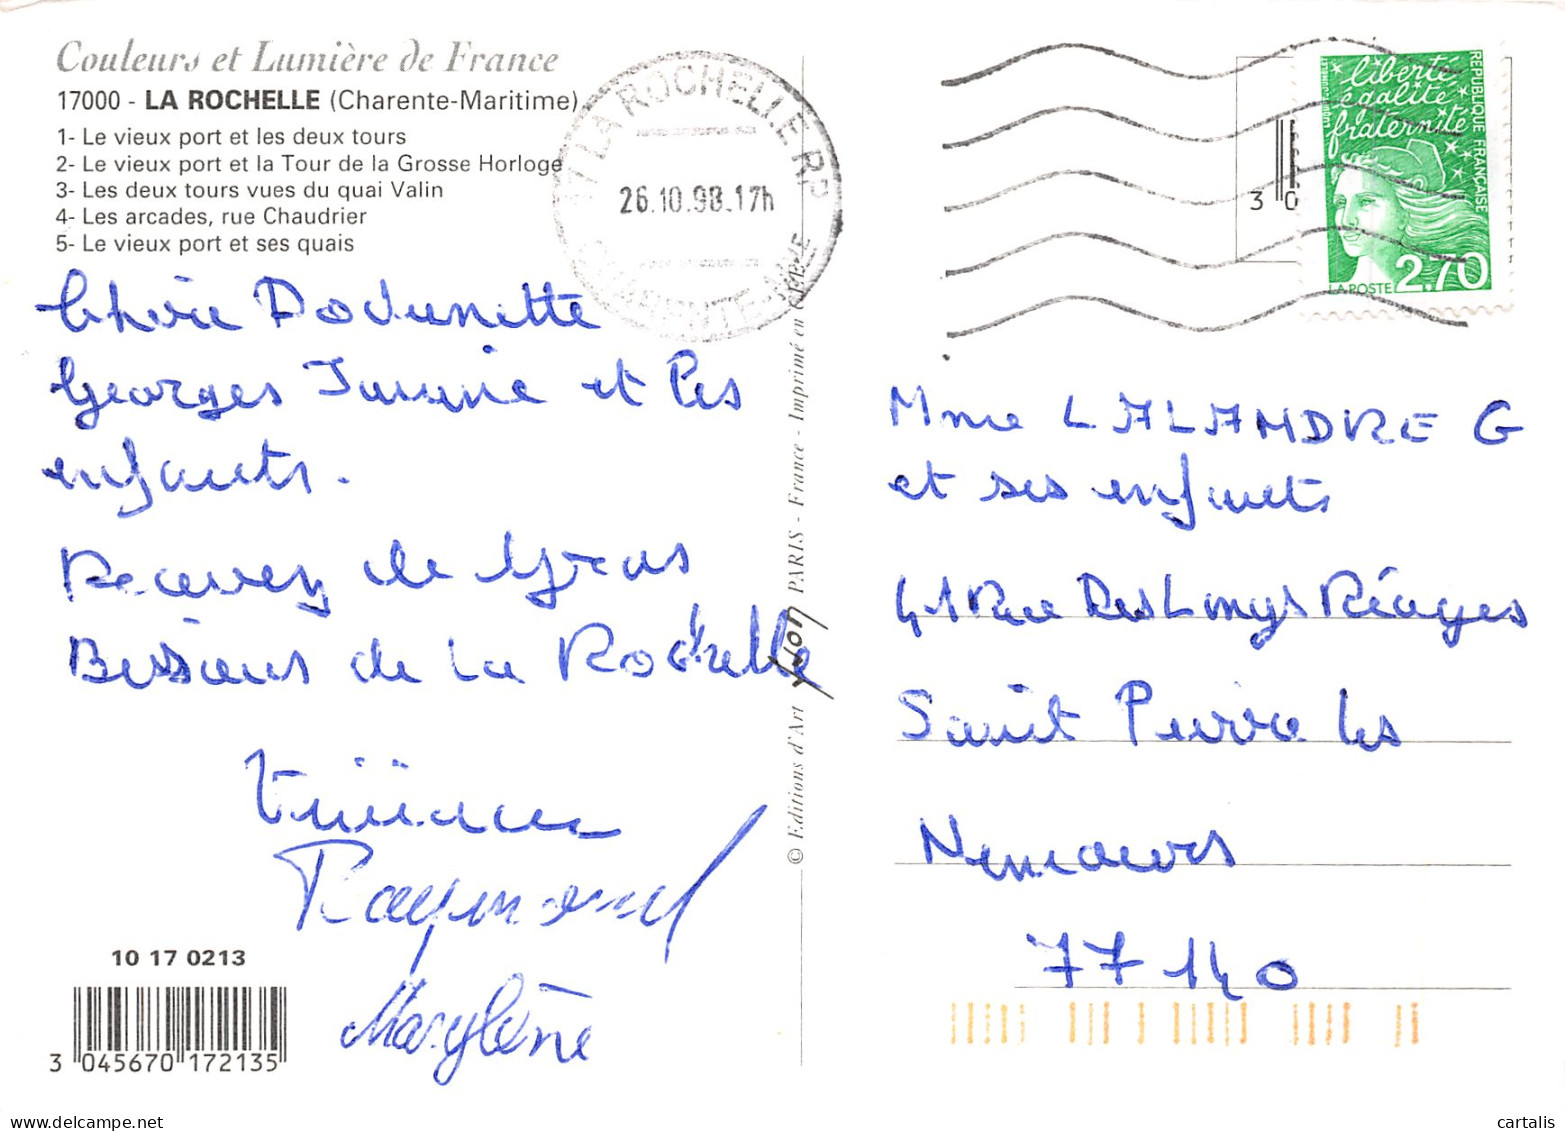 Couleurs et Lumière de France
17000 - LA ROCHELLE (Charente-Maritime)
1- Le vieux port et les deux tours
2- Le vieux port et la Tour de la Grosse Horloge
3- Les deux tours vues du quai Valin
4- Les arcades, rue Chaudrier
5- Le vieux port et ses quais
17 LA ROCHELLE RP
26.10.98.17h
CHARENTE-MME
liberté
égalité
fraternité
REPUBLIQUE FRANÇAISE
LA POSTE 2,70
30
Chérie
Georges et les
enfants.
Recevez de gros
Bisous de La Rochelle
Raymond
Marylène
© Editions d'Art YVON PARIS - France - Imprimé en
Mme LALANDRE G
et ses enfants
41 Rue Des Longs Réages
Saint Pierre les
Nemours
77140
10 17 0213
3 045670 172135
cartalis